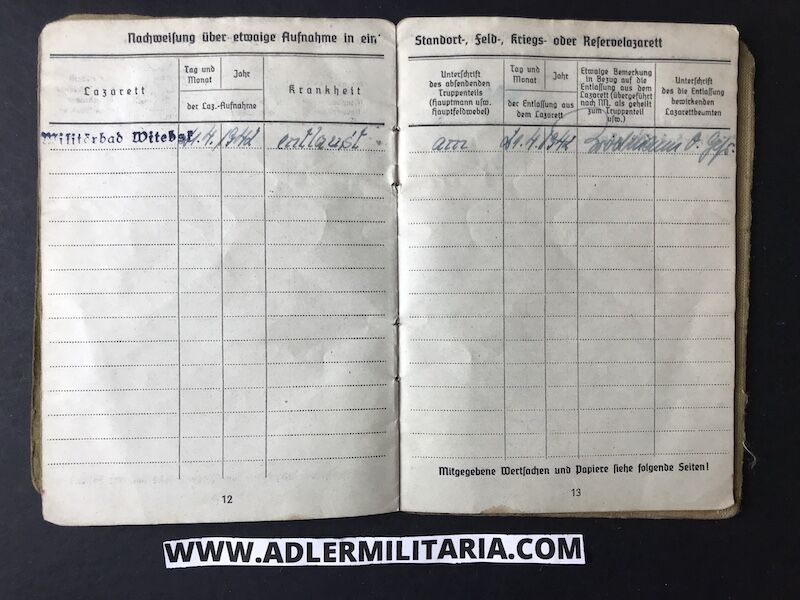 Nachweisung über etwaige Aufnahme in ein
Lazarett
Tag und Monat
Jahr
der Laz.-Aufnahme
Krankheit
Militärbad Witebsk
21.4.
1942
entlaust
12
Standort-, Feld-, Kriegs- oder Reservelazarett
Unterschrift
des absendenden
Truppenteils
(Hauptmann usw.
Hauptfeldwebel)
Tag und
Monat
Jahr
der Entlassung aus
dem Lazarett
Etwaige Bemerkung
in Bezug auf die
Entlassung aus dem
Lazarett (übergeführt
nach M. als geheilt
zum Truppenteil
usw.)
Unterschrift
des die Entlassung
bewirkenden
Lazarettbeamten
am
21.4.
1942
Mitgegebene Wertsachen und Papiere siehe folgende Seiten!
13
WWW.ADLERMILITARIA.COM